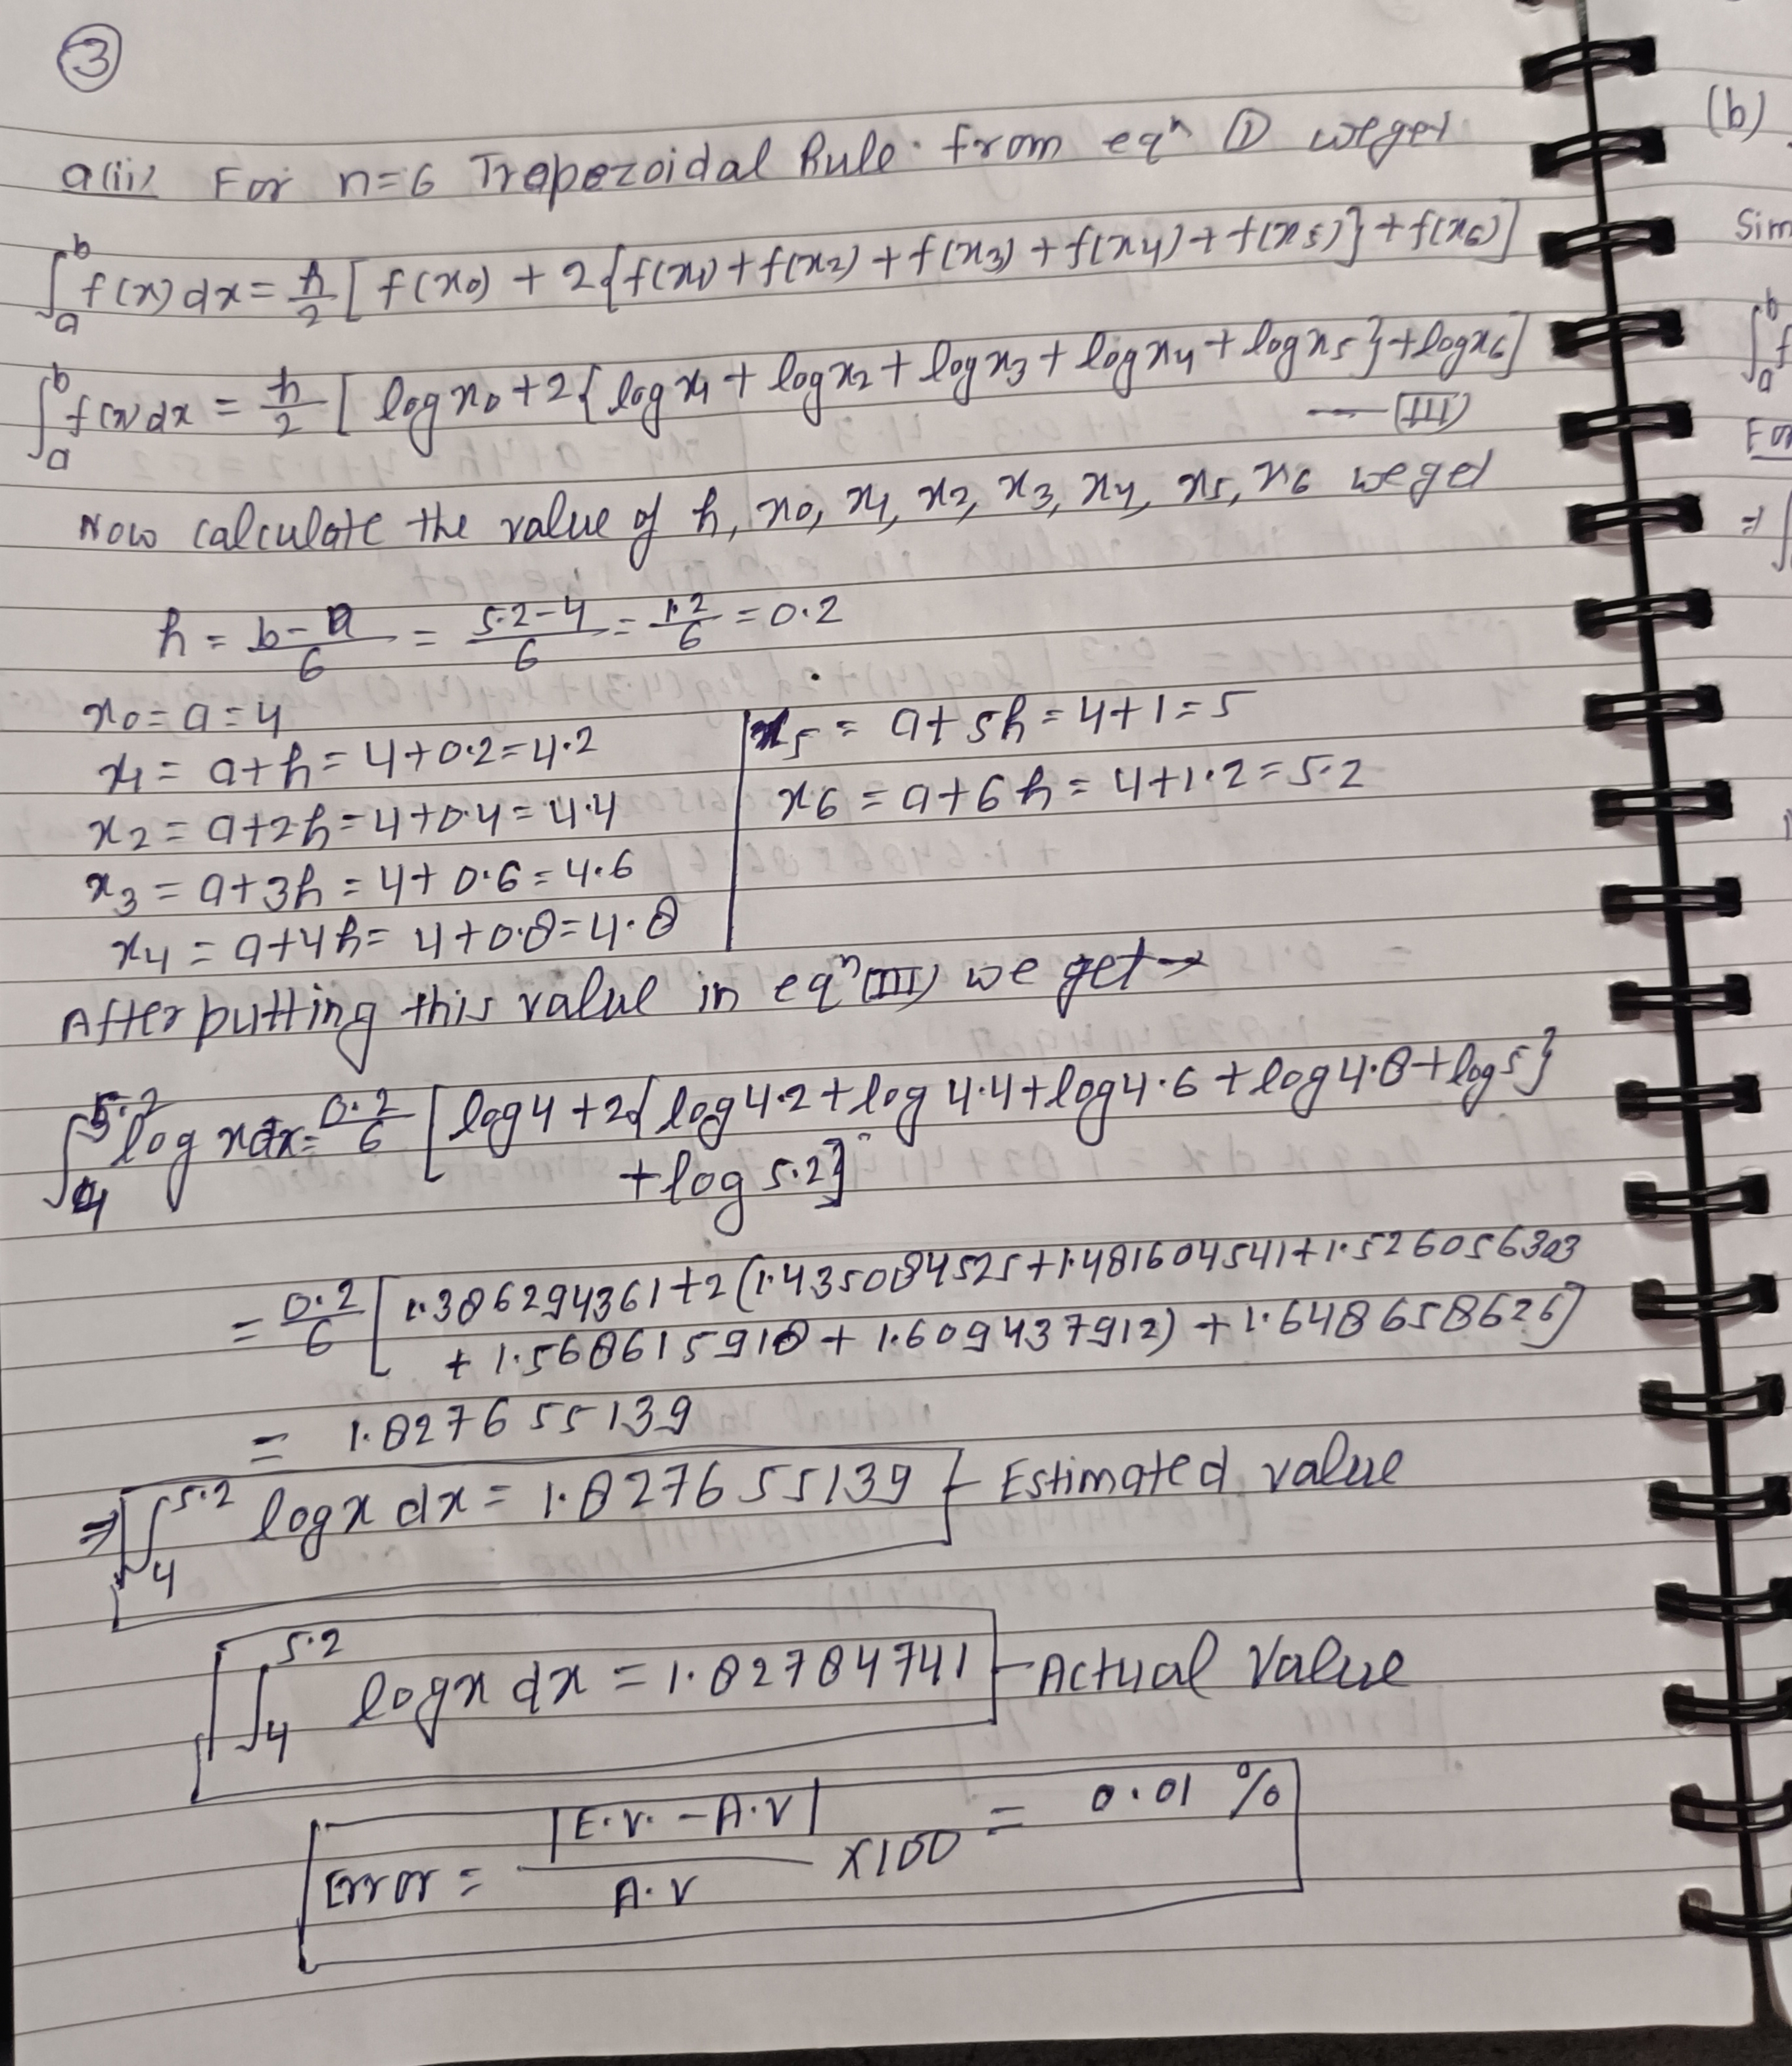 ③
(b)
a(ii) For n=6 Trapezoidal Rule. from eqⁿ ① we get
Sim
∫ₐᵇ f(x)dx = h/2 [ f(x₀) + 2{f(x₁)+f(x₂)+f(x₃)+f(x₄)+f(x₅)}+f(x₆)]
∫ₐᵇ f(x)dx = h/2 [ log x₀+2{ log x₁+ log x₂+ log x₃+ log x₄+ log x₅}+log x₆]
— (III)
Now calculate the value of h, x₀, x₁, x₂, x₃, x₄, x₅, x₆ we get
h = b-a/6 = 5.2-4/6 = 1.2/6 = 0.2
x₀=a=4
x₁ = a+h = 4+0.2=4.2
x₂ = a+2h=4+0.4=4.4
x₃ = a+3h = 4+0.6=4.6
x₄ = a+4h= 4+0.8=4.8
x₅ = a+5h=4+1=5
x₆ = a+6h = 4+1.2=5.2
After putting this value in eqⁿ(III) we get→
∫₄^5.2 log x dx= 0.2/6 [ log4+2{log4.2+log 4.4+log4.6+log4.8+log5}
+log 5.2]
= 0.2/6 [ 1.386294361+2(1.435084525+1.481604541+1.526056303
+ 1.568615918+ 1.609437912) +1.648658626]
= 1.827655139
⇒ ∫₄^5.2 log x dx = 1.827655139 - Estimated value
∫₄^5.2 log x dx = 1.82784741 - Actual Value
Error = |E.V. - A.V|/A.V ×100 = 0.01 %